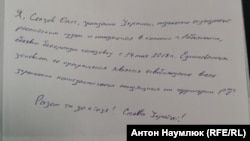 Я, Сенцов Олег, гражданин Украины, незаконно осуждённый
российским судом и находящийся в колонии г. Лабытнанги,
объявил бессрочную голодовку с 14 мая 2018 г. Единственным
условием её прекращения является освобождение всех
украинских политзаключённых находящихся на территории РФ.
Разом та до кінця! Слава Україні!
Антон Наумлюк (RFE/RL)